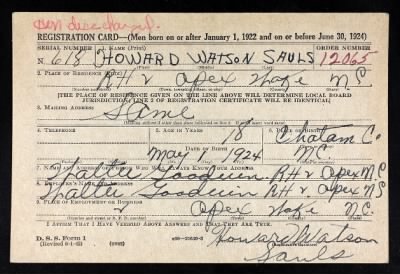 REGISTRATION CARD—(Men born on or after January 1, 1922 and on or before June 30, 1924)
SERIAL NUMBER 1. NAME (Print) ORDER NUMBER
N 618 HOWARD WATSON SAULS 12065
2. PLACE OF RESIDENCE (Print)
RH 2 Apex Wake N.C.
[THE PLACE OF RESIDENCE GIVEN ON THE LINE ABOVE WILL DETERMINE LOCAL BOARD
JURISDICTION; LINE 2 OF REGISTRATION CERTIFICATE WILL BE IDENTICAL]
3. MAILING ADDRESS
Same
4. TELEPHONE 5. AGE IN YEARS 6. PLACE OF BIRTH
18 Chatam C.
DATE OF BIRTH
May 1 1924 NC
7. NAME AND ADDRESS OF PERSON WHO WILL ALWAYS KNOW YOUR ADDRESS
Walter Goodwin RH 2 Apex N.C.
8. EMPLOYER'S NAME AND ADDRESS
Walter Goodwin RH 2 Apex N.C.
9. PLACE OF EMPLOYMENT OR BUSINESS
2 Apex Wake N.C.
I AFFIRM THAT I HAVE VERIFIED ABOVE ANSWERS AND THAT THEY ARE TRUE.
D. S. S. Form 1
Howard Watson
Sauls